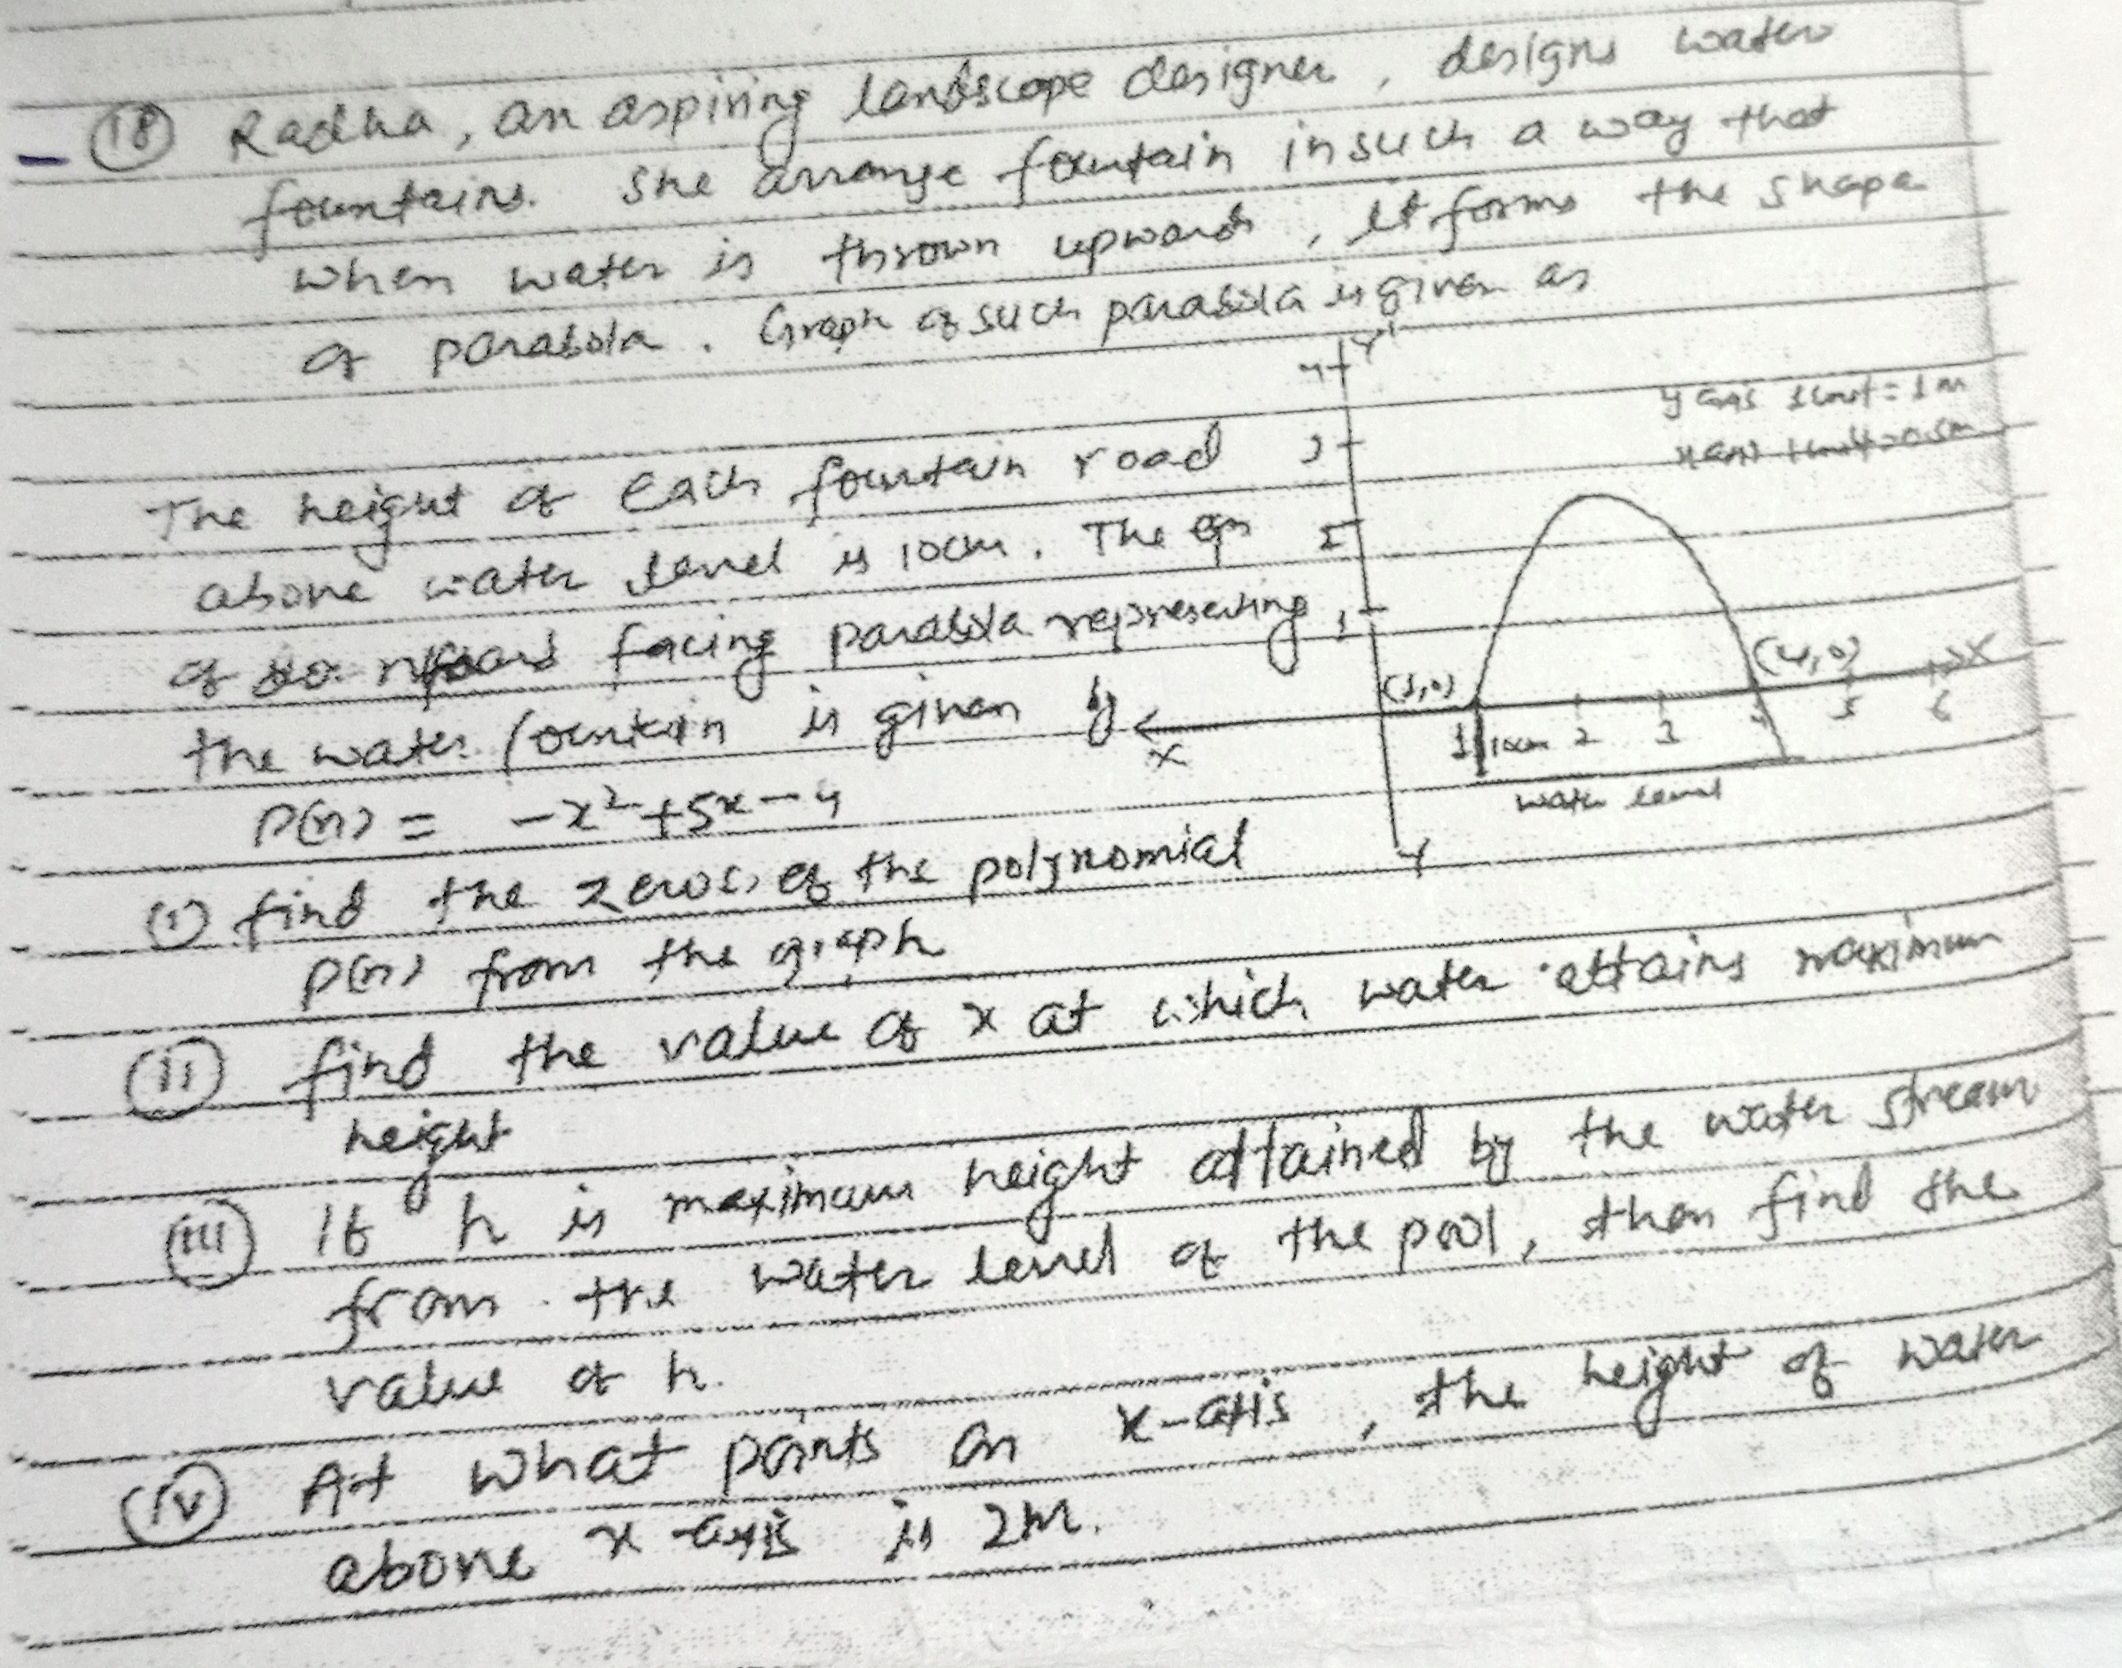 18 Radha, an aspiring landscape designer, designs water
fountains. She arrange fountain in such a way that
when water is thrown upwards, it forms the shape
of parabola. Graph of such parabola is given as
y axis 1 unit = 1 m
x axis 1 unit = 0.5m
Y'
4
3
2
1
(1,0)
(4,0)
X
1 10cm 2 3 4 5 6
X
water level
Y
The height of each fountain road
above water level is 10cm. The eqn
of facing parabola representing
the water fountain is given by
P(x) = -x²+5x-4
(i) find the zeros of the polynomial
P(x) from the graph
(ii) find the value of x at which water attains maximum
height
(iii) If h is maximum height attained by the water stream
from the water level of the pool, then find the
value of h.
(iv) At what points on x-axis, the height of water
above x-axis is 2m.